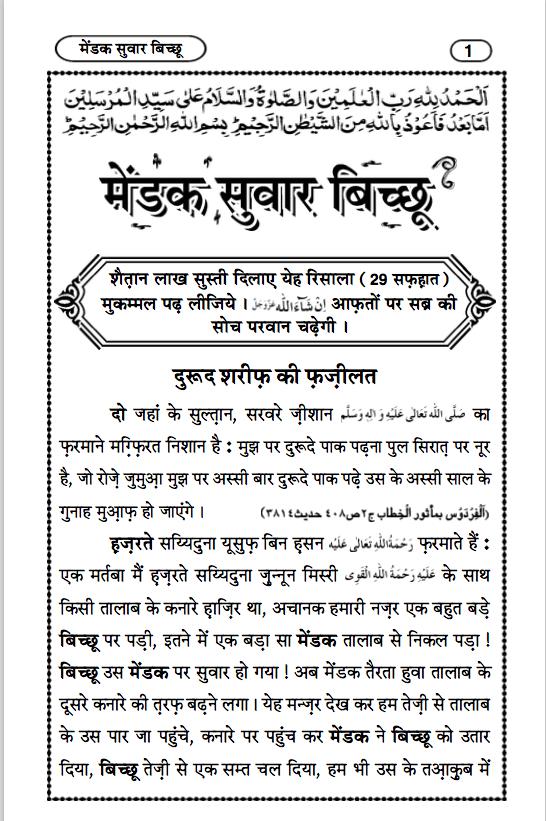 मेंडक सुवार बिच्छू
1
اَلْحَمْدُ لِلّٰہِ رَبِّ الْعٰلَمِیْنَ وَالصَّلٰوۃُ وَالسَّلَامُ عَلٰی سَیِّدِ الْمُرْسَلِیْنَ
اَمَّا بَعْدُ فَاَعُوْذُ بِاللّٰہِ مِنَ الشَّیْطٰنِ الرَّجِیْمِ ؕ بِسْمِ اللّٰہِ الرَّحْمٰنِ الرَّحِیْمِ ؕ
मेंडक सुवार बिच्छू
शैत़ान लाख सुस्ती दिलाए येह रिसाला ( 29 सफ़ह़ात )
मुकम्मल पढ़ लीजिये । اِنْ شَآءَ اللّٰه عَزَّوَجَلَّ आफ़तों पर सब्र की
सोच परवान चढ़ेगी ।
दुरूद शरीफ़ की फ़ज़ीलत
दो जहां के सुल्त़ान, सरवरे ज़ीशान صَلَّى اللهُ تَعَالٰى عَلَيْهِ وَاٰلِهٖ وَسَلَّم का
फ़रमाने मग़्फ़िरत निशान है : मुझ पर दुरूदे पाक पढ़ना पुल सिरात़ पर नूर
है, जो रोज़े जुमुआ़ मुझ पर अस्सी बार दुरूदे पाक पढ़े उस के अस्सी साल के
गुनाह मुआ़फ़ हो जाएंगे । (اَلْفِرْدَوْس بمأثور الْخِطاب ج٢ص٤٠٨ حديث٣٨١٤)
ह़ज़रते सय्यिदुना यूसुफ़ बिन ह़सन رَحْمَةُ اللهِ تَعَالٰى عَلَيْهِ फ़रमाते हैं :
एक मर्तबा मैं ह़ज़रते सय्यिदुना ज़ुन्नून मिस्री عَلَيْهِ رَحْمَةُ اللهِ الْقَوِى के साथ
किसी तालाब के कनारे ह़ाज़िर था, अचानक हमारी नज़र एक बहुत बड़े
बिच्छू पर पड़ी, इतने में एक बड़ा सा मेंडक तालाब से निकल पड़ा !
बिच्छू उस मेंडक पर सुवार हो गया ! अब मेंडक तैरता हुवा तालाब के
दूसरे कनारे की त़रफ़ बढ़ने लगा । येह मन्ज़र देख कर हम तेज़ी से तालाब
के उस पार जा पहुंचे, कनारे पर पहुंच कर मेंडक ने बिच्छू को उतार
दिया, बिच्छू तेज़ी से एक सम्त चल दिया, हम भी उस के तआ़क़ुब में